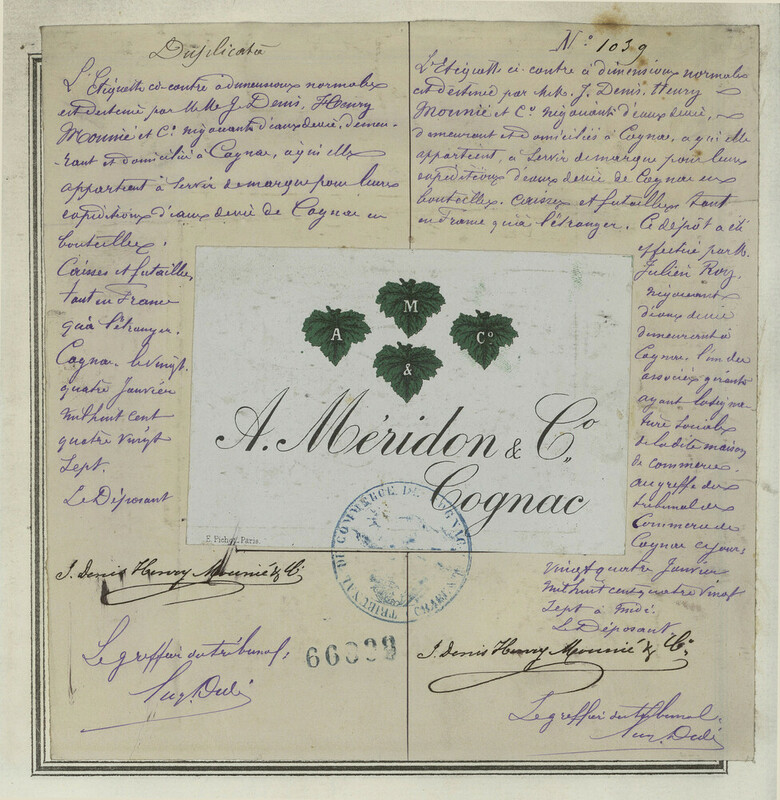 Duplicata
L'Etiquette ci-contre à dimensions normales
est destinée par MM. J. Denis, Henry
Mounié et Co. négociants d'eaux devie, demeu-
rant et domiciliés à Cognac, à qui elle
appartient à servir de marque pour leurs
expéditions d'eaux devie de Cognac en
bouteilles,
Caisses et futailles,
tant en France
qu'à l'étranger.
Cognac, le vingt
quatre Janvier
mil huit cent
quatre vingt
sept.
Le Déposant
J. Denis Henry Mounié & Co.
Le greffier du tribunal:
No. 1039
L'Etiquette ci-contre à dimensions normales
est destinée par MM. J. Denis, Henry
Mounié et Co. négociants d'eaux devie,
demeurant et domiciliés à Cognac, à qui elle
appartient, à servir de marque pour leurs
expéditions d'eaux devie de Cognac en
bouteilles, caisses et futailles tant
en France qu'à l'étranger. Ce dépôt a été
effectué par M.
Julien Roy,
négociant
d'eaux devie
demeurant à
Cognac l'un des
associés gérants
ayant la signa-
ture sociale
de la dite maison
de commerce.
au greffe du
tribunal de
Commerce de
Cognac ce jour
vingt quatre Janvier
mil huit cent quatre vingt
sept à midi.
Le Déposant
J. Denis Henry Mounié & Co.
Le greffier du tribunal.
A M & Co
A. Méridon & Co.
Cognac
F. Fichot, Paris.
TRIBUNAL DE COMMERCE DE COGNAC